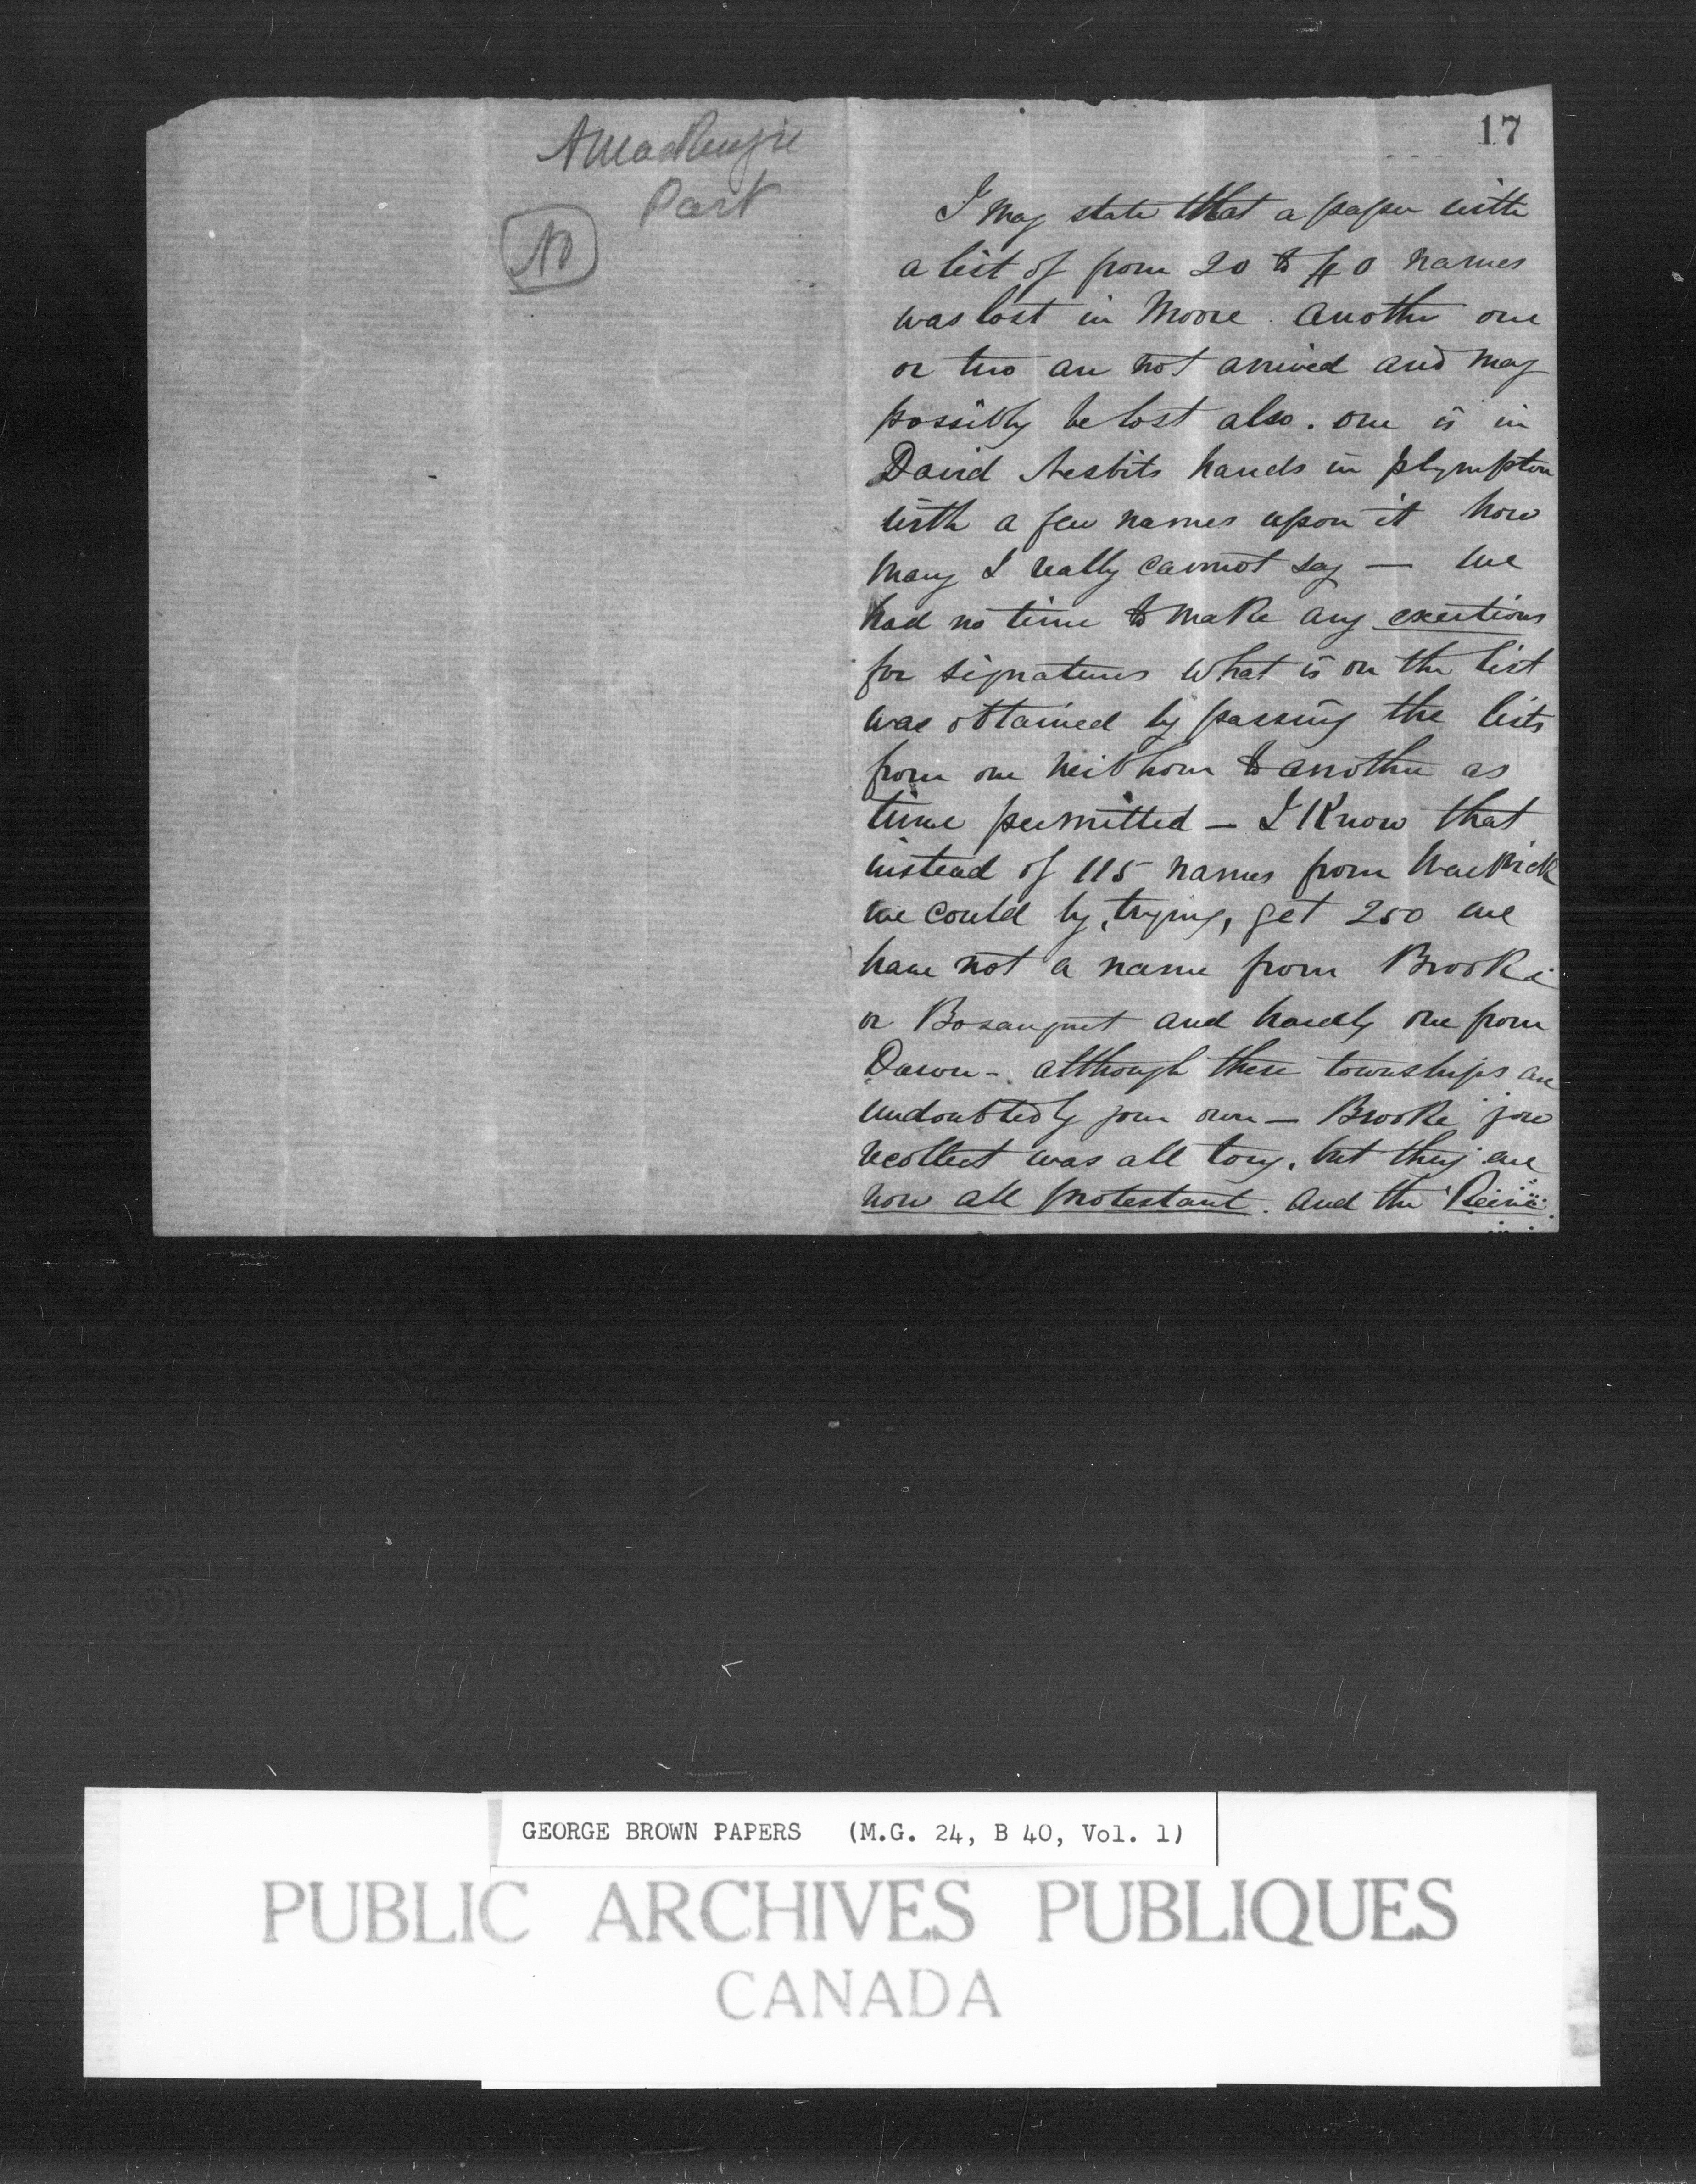 AMacKenzie
Part
No
17
I may state that a paper with
a list of from 20 to 40 names
was lost in Moore. Another one
or two are not arrived and may
possibly be lost also. one is in
David Nesbits hands in plympton
with a few names upon it how
many I really cannot say — we
had no time to make any exertions
for signatures what is on the list
was obtained by passing the lists
from one neibhour to another as
time permitted — I Know that
instead of 115 names from Warwick
we could by, trying, get 250 we
have not a name from Brooke
or Bosanquet and hardly one from
Dawn - although these townships are
undoubtedly your own — Brooke you
recollect was all tory, but they are
now all protestant. And the
GEORGE BROWN PAPERS (M.G. 24, B 40, Vol. 1)
PUBLIC ARCHIVES PUBLIQUES
CANADA